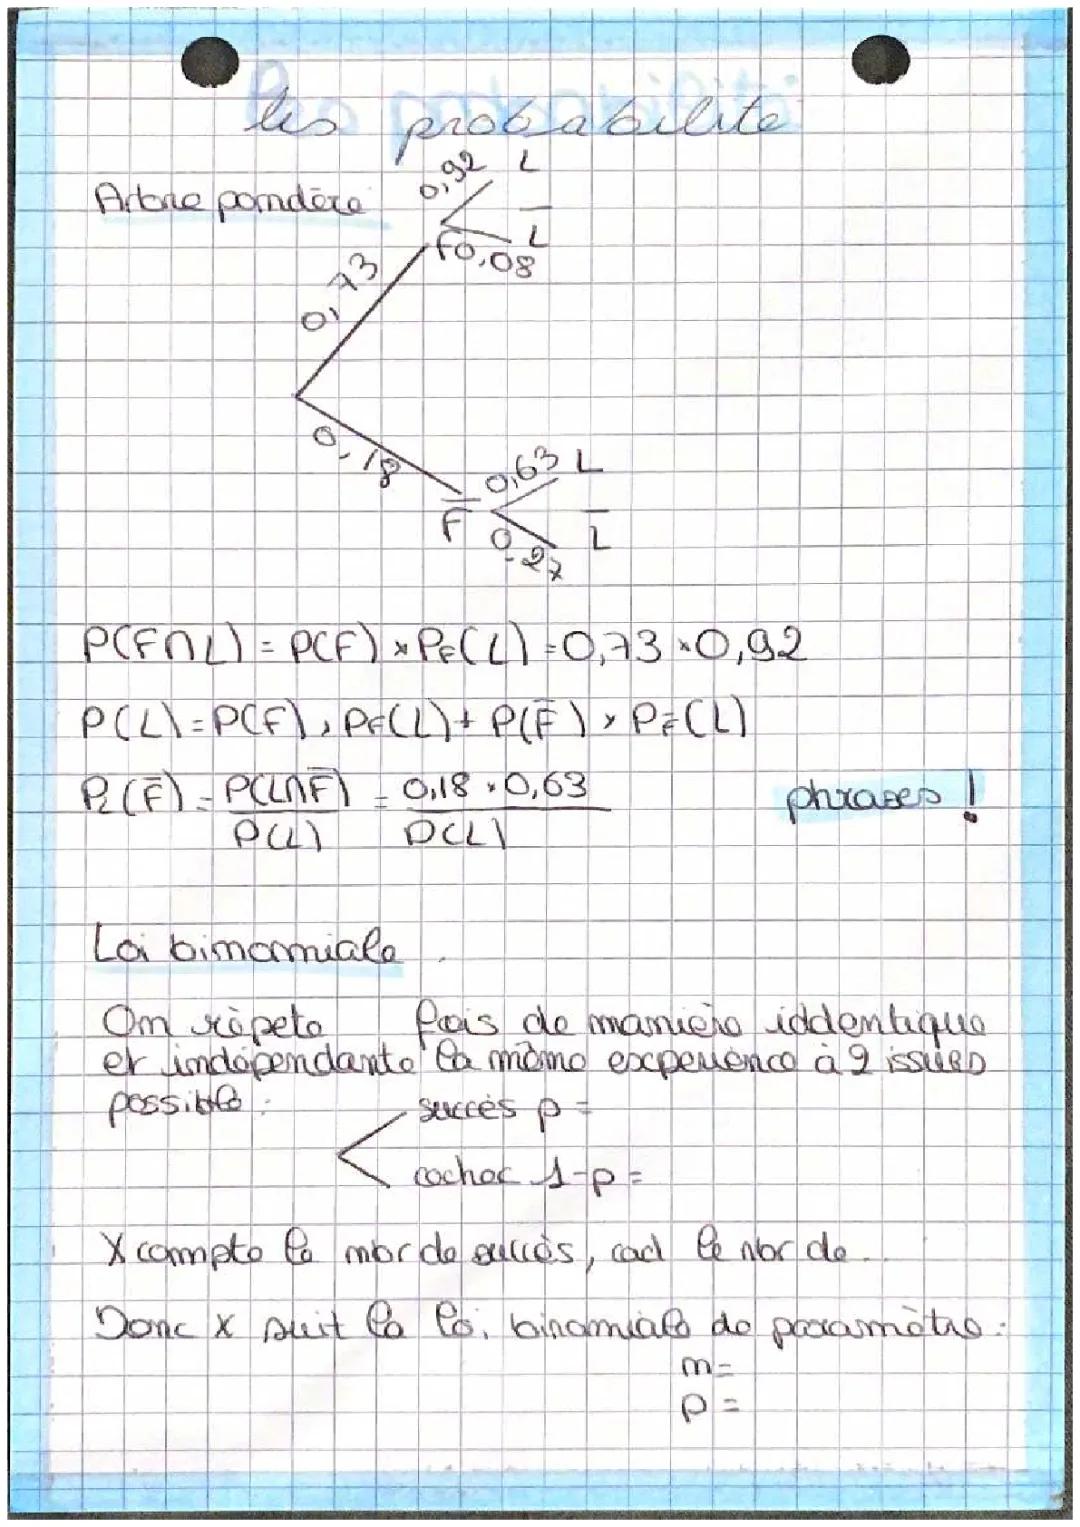 les probabilite
Arbre pondère
0,92 L
L̅
F 0,08
0,73
0,18
0,63 L
F̅
L̅
0,27
P(F∩L) = P(F) × P_F(L) = 0,73 × 0,92
P(L) = P(F) × P_F(L) + P(F̅) × P_F̅(L)
P_L(F̅) = P(L∩F̅) / P(L) = 0,18 × 0,63 / P(L)
phrases !
Loi binomiale
On répète fois de manière iddentique
et indépendante la même experience à 2 issues
possible :
succès p =
echec 1-p =
X compte le nbr de succès, cad le nbr de...
Donc X suit la loi binomiale de paramètre :
n =
p =